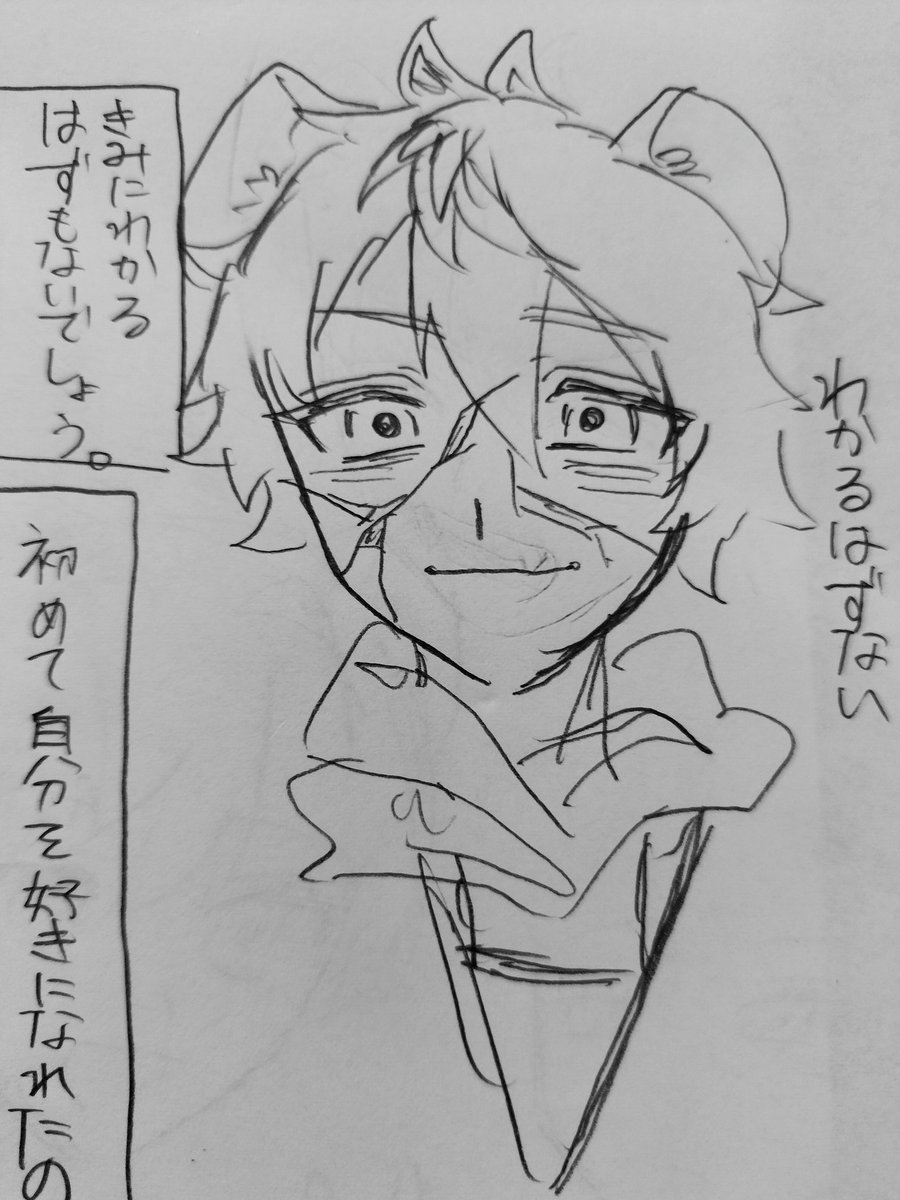 わかるはずない
きみにわかる
はずもないでしょう。
初めて自分を好きになれたの